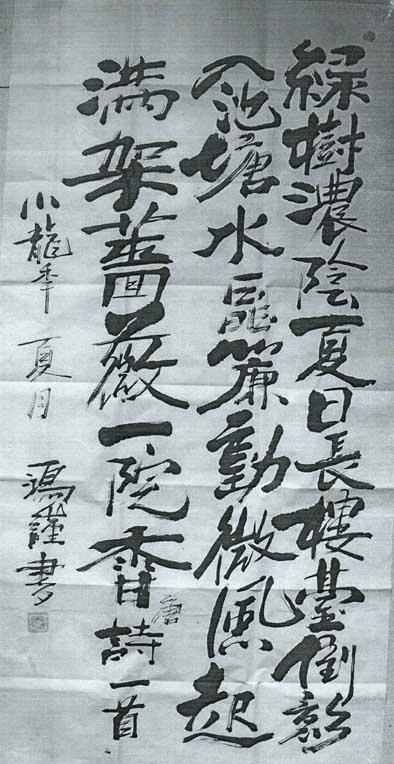 緑樹濃陰夏日長樓臺倒影
入池塘水晶簾動微風起
满架薔薇一院香唐詩一首
小龍年 夏月 書